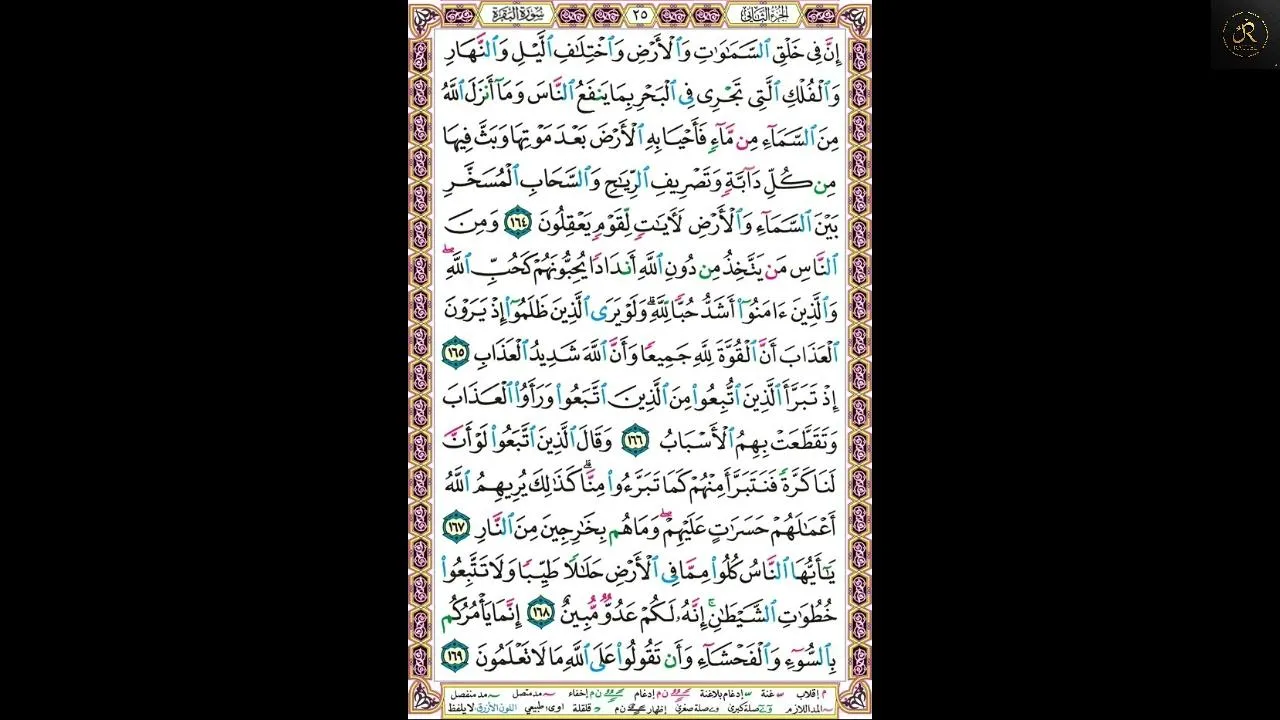 الجزء الثاني ٢٥ سورة البقرة
إِنَّ فِي خَلْقِ ٱلسَّمَٰوَٰتِ وَٱلْأَرْضِ وَٱخْتِلَٰفِ ٱلَّيْلِ وَٱلنَّهَارِ
وَٱلْفُلْكِ ٱلَّتِي تَجْرِي فِي ٱلْبَحْرِ بِمَا يَنفَعُ ٱلنَّاسَ وَمَآ أَنزَلَ ٱللَّهُ
مِنَ ٱلسَّمَآءِ مِن مَّآءٍ فَأَحْيَا بِهِ ٱلْأَرْضَ بَعْدَ مَوْتِهَا وَبَثَّ فِيهَا
مِن كُلِّ دَآبَّةٍ وَتَصْرِيفِ ٱلرِّيَٰحِ وَٱلسَّحَابِ ٱلْمُسَخَّرِ
بَيْنَ ٱلسَّمَآءِ وَٱلْأَرْضِ لَءَايَٰتٍ لِّقَوْمٍ يَعْقِلُونَ ١٦٤ وَمِنَ
ٱلنَّاسِ مَن يَتَّخِذُ مِن دُونِ ٱللَّهِ أَندَادًا يُحِبُّونَهُمْ كَحُبِّ ٱللَّهِۖ
وَٱلَّذِينَ ءَامَنُوٓا۟ أَشَدُّ حُبًّا لِّلَّهِۗ وَلَوْ يَرَى ٱلَّذِينَ ظَلَمُوٓا۟ إِذْ يَرَوْنَ
ٱلْعَذَابَ أَنَّ ٱلْقُوَّةَ لِلَّهِ جَمِيعًا وَأَنَّ ٱللَّهَ شَدِيدُ ٱلْعَذَابِ ١٦٥
إِذْ تَبَرَّأَ ٱلَّذِينَ ٱتُّبِعُوا۟ مِنَ ٱلَّذِينَ ٱتَّبَعُوا۟ وَرَأَوُا۟ ٱلْعَذَابَ
وَتَقَطَّعَتْ بِهِمُ ٱلْأَسْبَابُ ١٦٦ وَقَالَ ٱلَّذِينَ ٱتَّبَعُوا۟ لَوْ أَنَّ
لَنَا كَرَّةً فَنَتَبَرَّأَ مِنْهُمْ كَمَا تَبَرَّءُوا۟ مِنَّاۗ كَذَٰلِكَ يُرِيهِمُ ٱللَّهُ
أَعْمَٰلَهُمْ حَسَرَٰتٍ عَلَيْهِمْۖ وَمَا هُم بِخَٰرِجِينَ مِنَ ٱلنَّارِ ١٦٧
يَٰٓأَيُّهَا ٱلنَّاسُ كُلُوا۟ مِمَّا فِي ٱلْأَرْضِ حَلَٰلًا طَيِّبًا وَلَا تَتَّبِعُوا۟
خُطُوَٰتِ ٱلشَّيْطَٰنِۚ إِنَّهُۥ لَكُمْ عَدُوٌّ مُّبِينٌ ١٦٨ إِنَّمَا يَأْمُرُكُم
بِٱلسُّوٓءِ وَٱلْفَحْشَآءِ وَأَن تَقُولُوا۟ عَلَى ٱللَّهِ مَا لَا تَعْلَمُونَ ١٦٩
م إقلاب غنة إدغام بلاغنة ن م إدغام ن م إخفاء مد متصل مد منفصل
المد اللازم صلة كبرى صلة صغرى إظهار ن م قلقلة اوى: طبيعي اللون الأزرق لا يلفظ